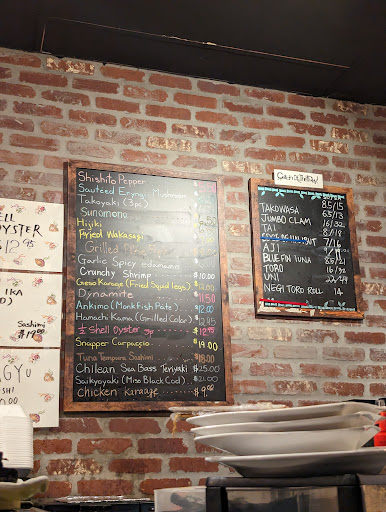 ELL
OYSTER
$12.95
IKA
Sashimi
$19.00
AGYU
Shishito Pepper
Sauteed Eryngi Mushroom
Takoyaki (3pc)
Sunomono
Hijiki
Fried Wakasagi
Grilled
Garlic Spicy edamame
Crunchy Shrimp $10.00
Geso Karaage (Fried Squid legs)
Dynamite $11.50
Ankimo (Monkfish Pate) $12
Hamachi Kama (Grilled Collar) $12.45
½ Shell Oyster 3p $12.95
Snapper Carpaccio $19.00
Tuna Tempura Sashimi $18.00
Chilean Sea Bass Teriyaki $25.00
Saikyoyaki (Miso Black Cod) $21.00
Chicken Karaage $9.00
Catch Of The Day!
TAKOWASA 8.5/15
JUMBO CLAM 6.5/13
TAI 16/32
8.5/18
AJI 7/16
BLUE FIN TUNA
TORO 8.5/21
UNI 16/32
NEGI TORO ROLL 14